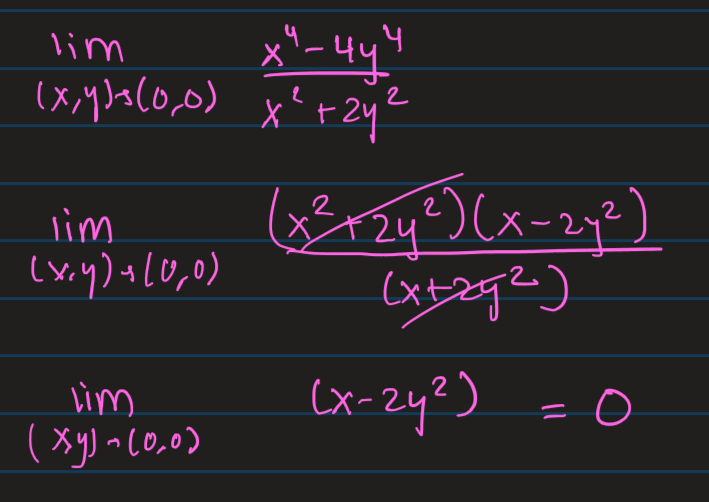 lim (x,y)→(0,0) x⁴-4y⁴ / x²+2y²
lim (x,y)→(0,0) (x²+2y²)(x-2y²) / (x+2y²)
lim (x,y)→(0,0) (x-2y²) = 0